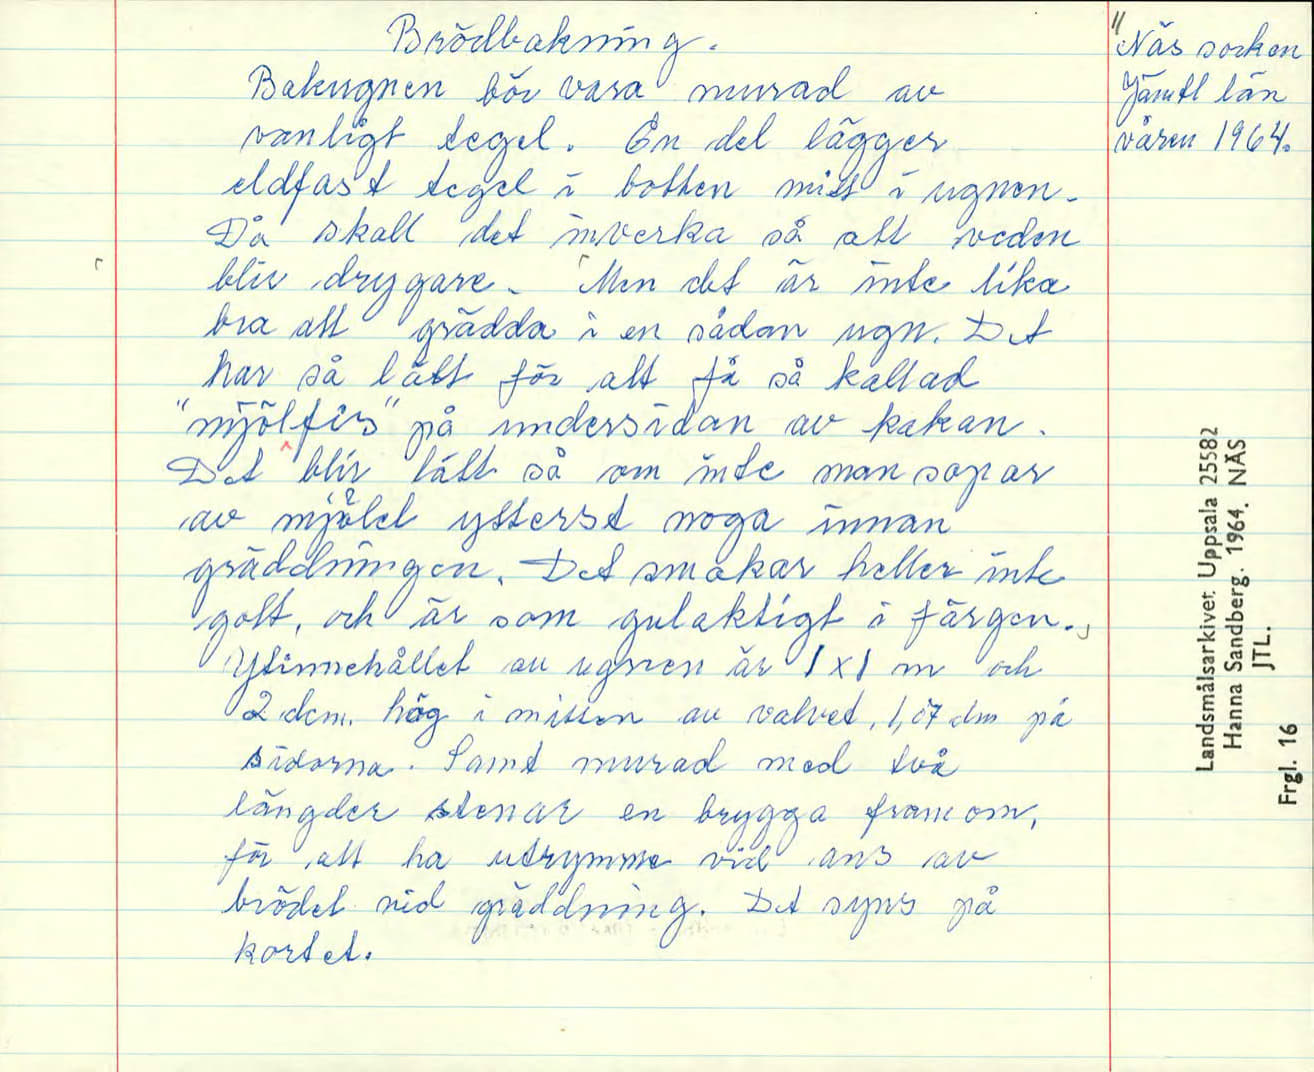 Brödbakning.
Bakugnen bör vara murad av
vanligt tegel. En del lägger
eldfast tegel i botten mitt i ugnen.
Då skall det inverka så att veden
blir drygare. Men det är inte lika
bra att grädda i en sådan ugn. Det
har så lätt för att få så kallad
"mjölfis" på undersidan av kakan.
Det blir lätt så om inte man sopar
av mjölet ytterst noga innan
gräddningen. Det smakar heller inte
gott, och är som gulaktigt i färgen.
Ytinnehållet av ugnen är 1x1 m och
2 dcm. hög i mitten av valvet, 1,07 dm på
sidorna. Samt murad med två
längder stenar en brygga framom,
för att ha utrymme vid ans av
brödet vid gräddning. Det syns på
kortet.
Näs socken
Jämtl län
våren 1964.
Landsmålsarkivet, Uppsala 25582
Hanna Sandberg. 1964. NÄS
JTL.
Frgl. 16